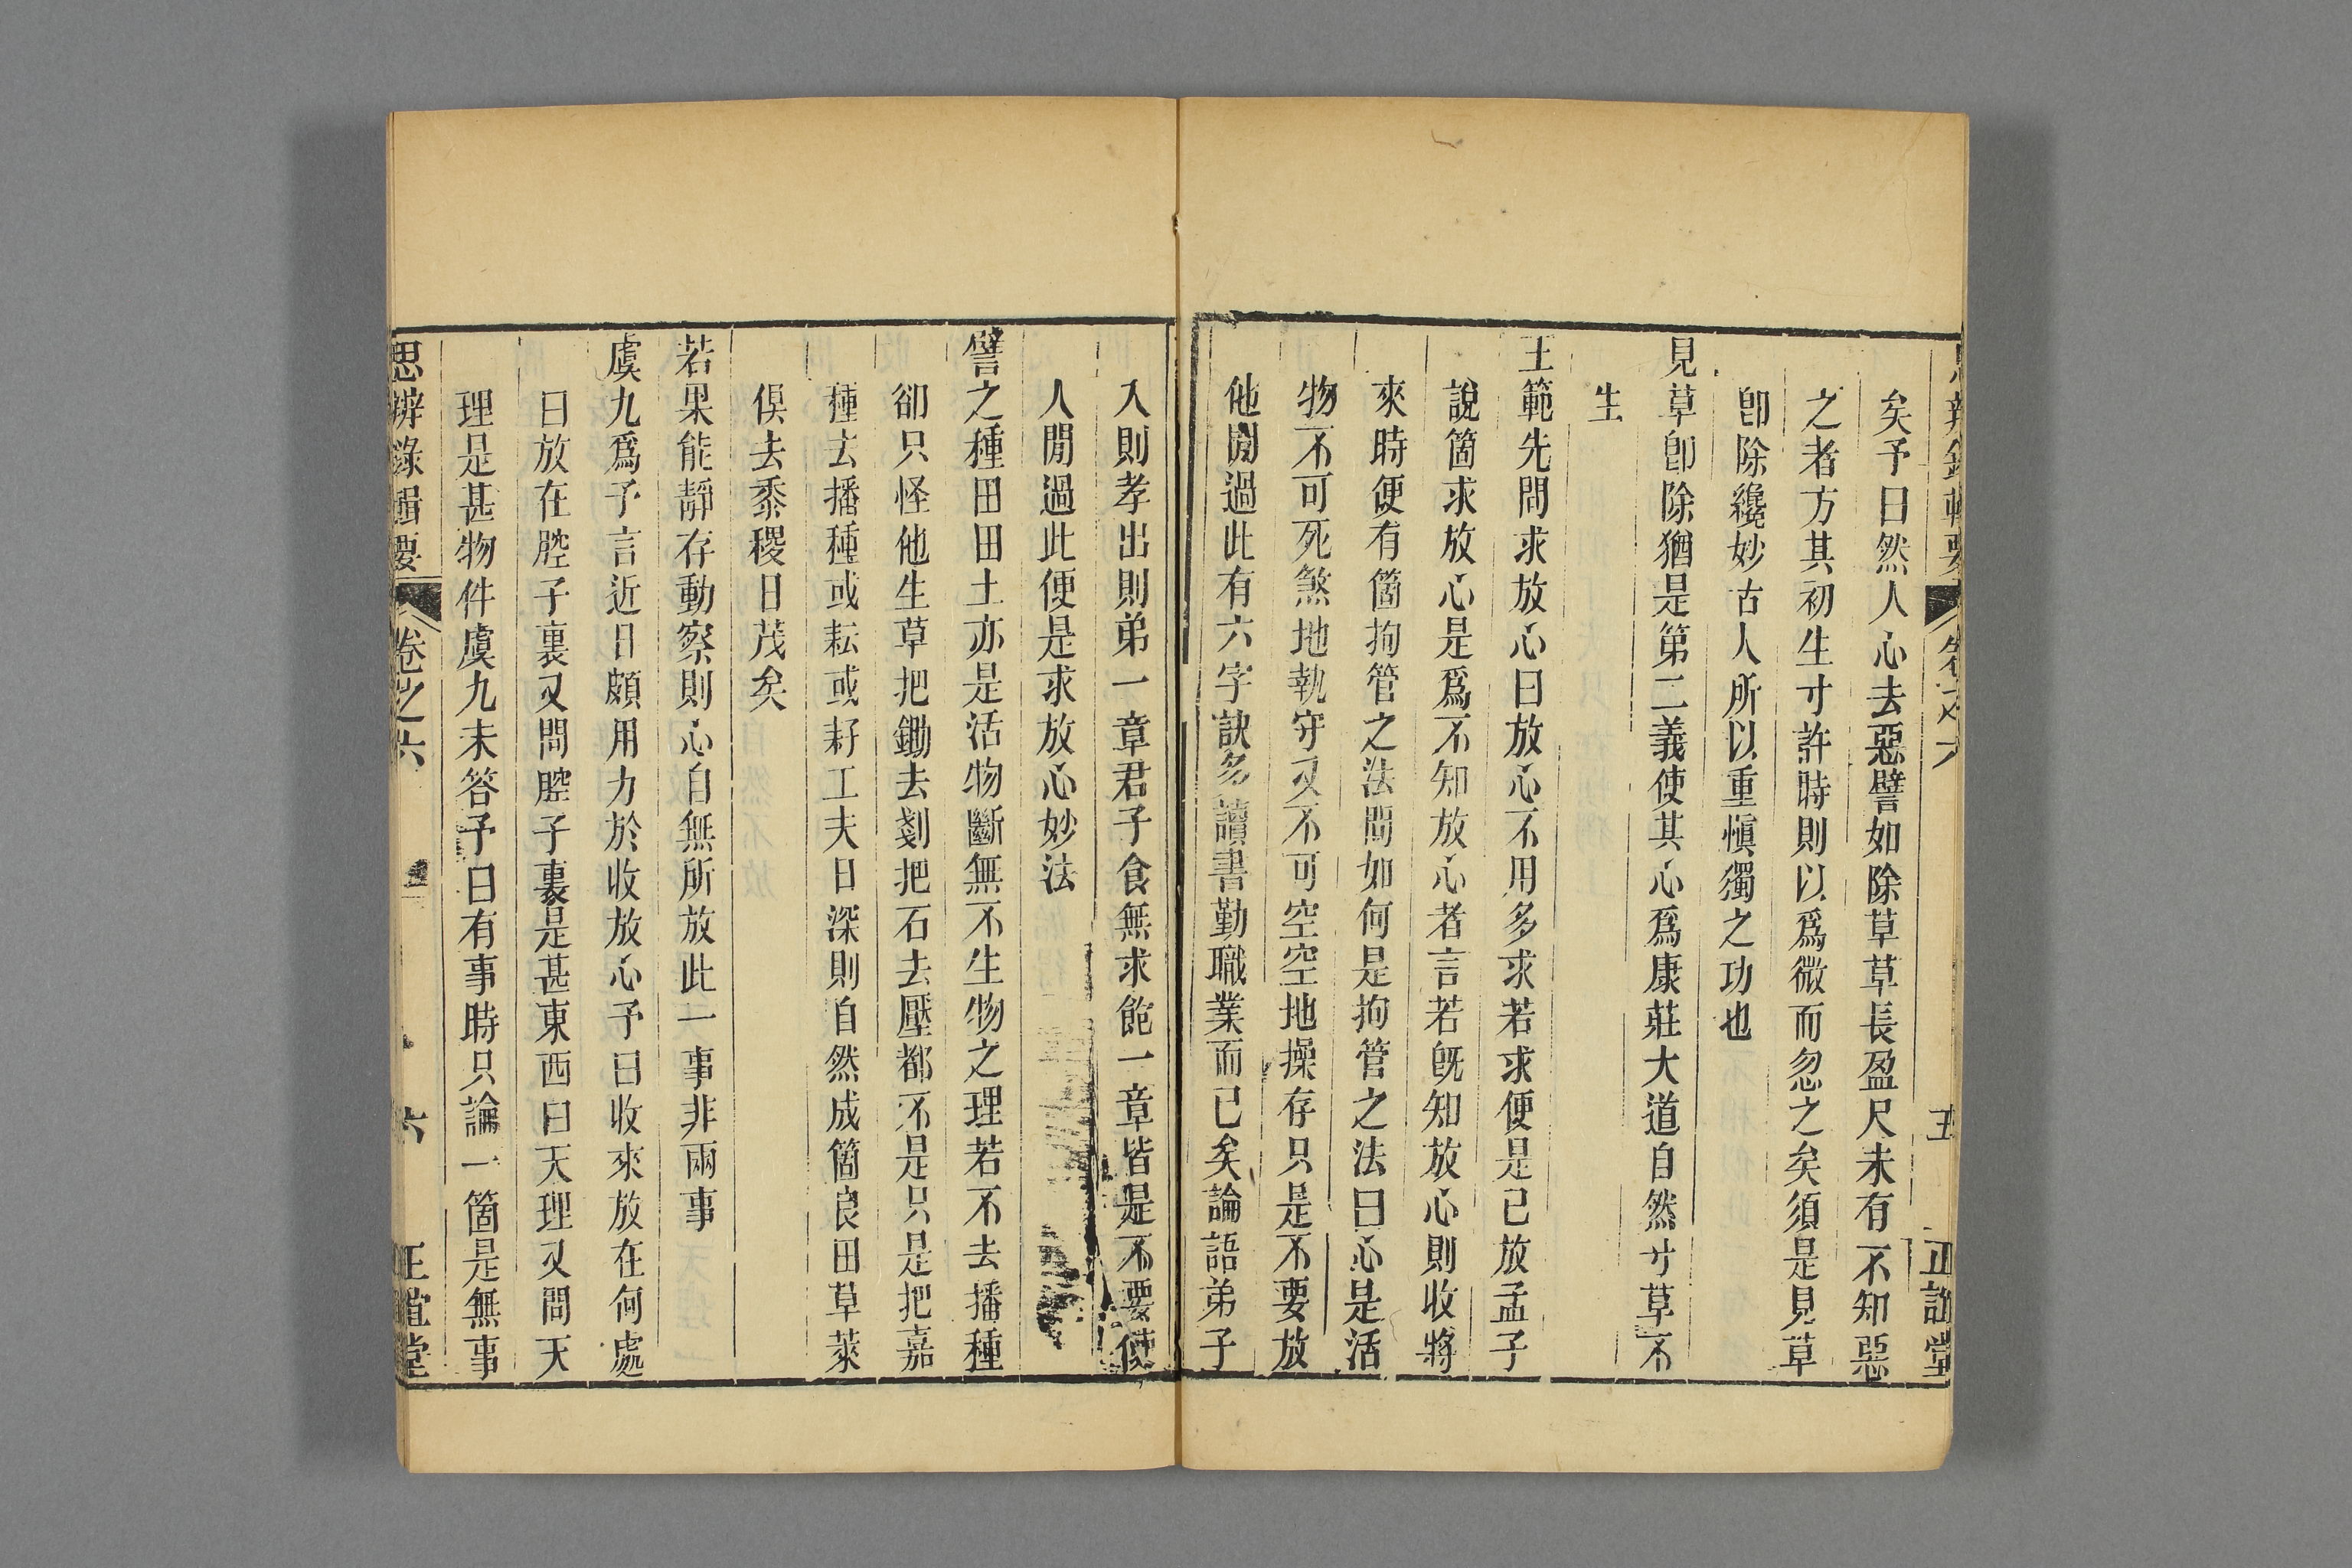 矣予曰然人心去惡譬如除草草長盈尺未有不知惡
之者方其初生寸許時則以爲微而忽之矣須是見草
卽除纔妙古人所以重愼獨之功也
見草卽除猶是第二義使其心爲康莊大道自然寸草不
生
王範先問求放心曰放心不用多求若求便是已放孟子
說箇求放心是爲不知放心者言若旣知放心則收將
來時便有箇拘管之法問如何是拘管之法曰心是活
物不可死煞地執守又不可空空地操存只是不要放
他閒過此有六字訣多讀書勤職業而已矣論語弟子
入則孝出則弟一章君子食無求飽一章皆是不要使
人閒過此便是求放心妙法
譬之種田田土亦是活物斷無不生物之理若不去播種
卻只怪他生草把鋤去剗把石去壓都不是只是把嘉
種去播種或耘或耔工夫日深則自然成箇良田草萊
俱去黍稷日茂矣
若果能靜存動察則心自無所放此一事非兩事
虞九爲予言近日頗用力於收放心予曰收來放在何處
曰放在腔子裏又問腔子裏是甚東西曰天理又問天
理是甚物件虞九未答予曰有事時只論一箇是無事
思辨錄輯要
卷之六
六
正誼堂